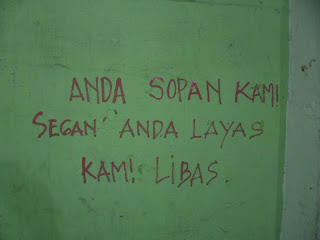 ANDA SOPAN KAMI
SEGAN' ANDA LAYAS
KAMI LIBAS.